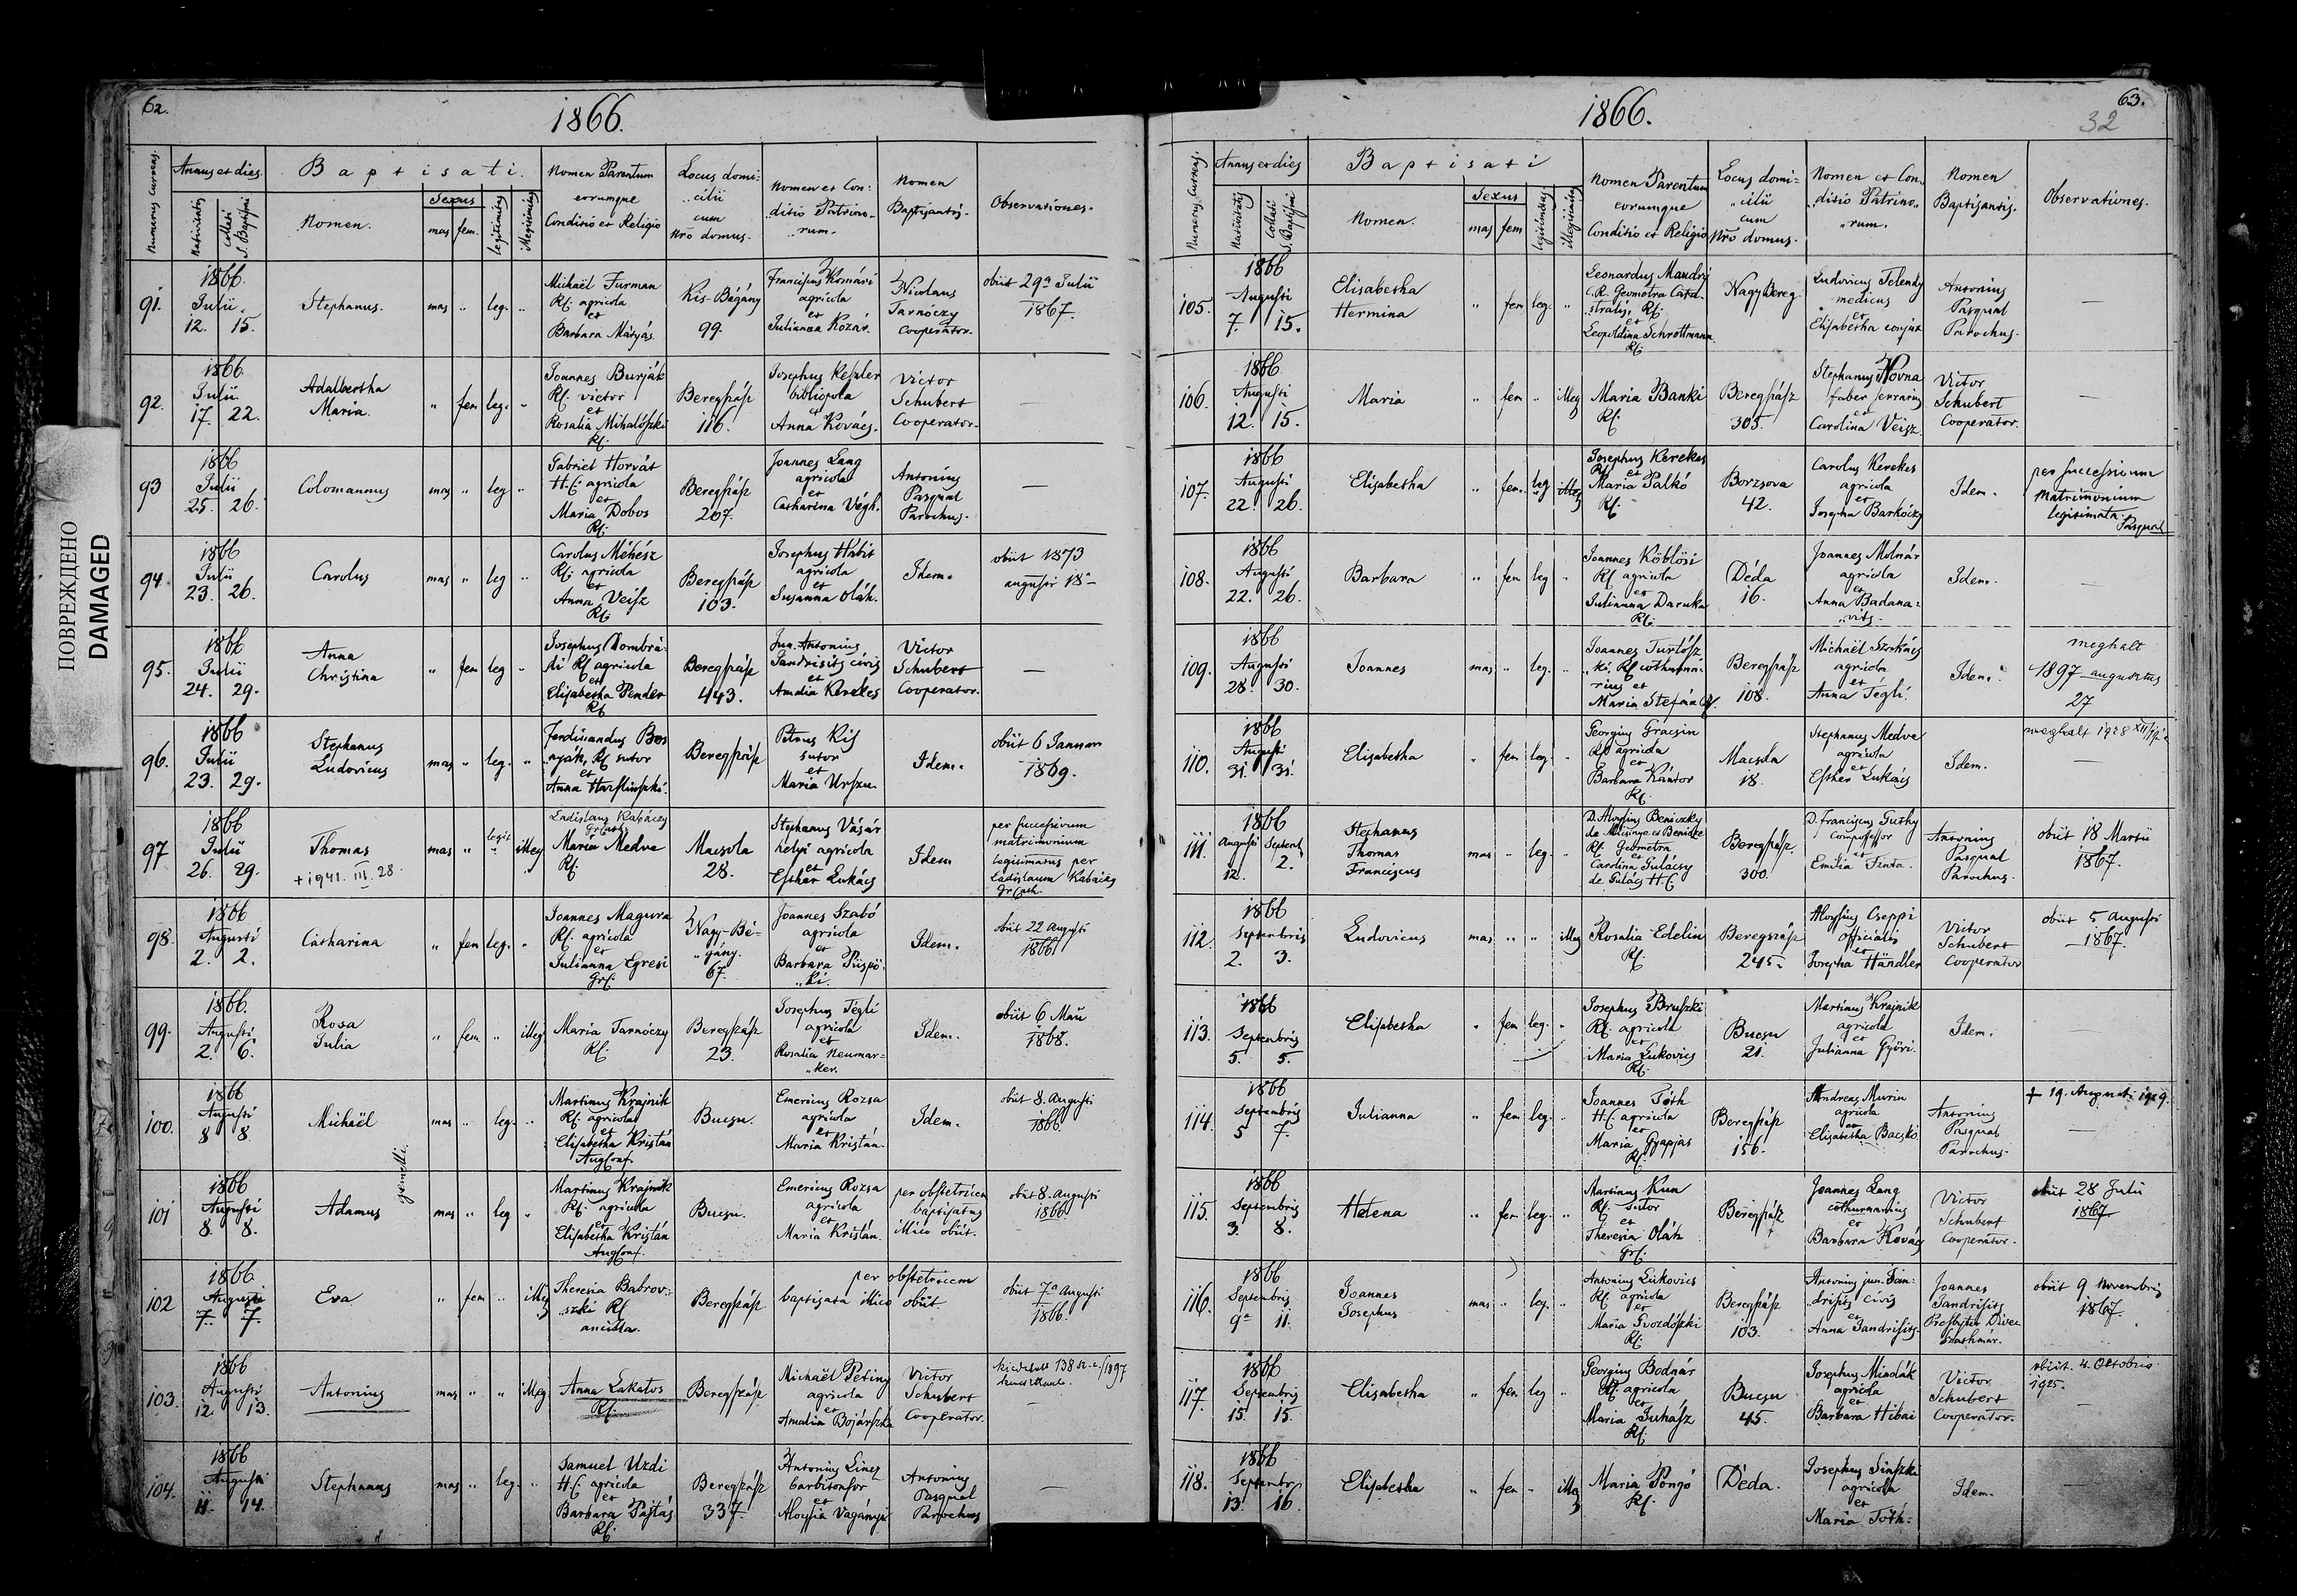 ПОВРЕЖДЕНО
DAMAGED
62.
1866.
Numerus Currens.
Annus et dies
Nativitatis
Collati S. Baptismi
Baptisati.
Nomen.
Sexus
mas
fem.
legitimitas
Illegitimitas
Nomen Parentum
eorumque
Conditio et Religio
Locus domi:
cilii
cum
Nro domus.
Nomen et Con:
ditio Patrino-
rum.
Nomen
Baptisantis.
Observationes.
91.
1866.
Julii.
12. 15.
Stephanus.
mas " leg. "
Michaël Furman
Rf. agricola
et
Barbara Mátyás
Kis-Bégány
99.
Franciscus Komári
agricola
et
Julianna Kozár.
Nicolaus
Tarnóczy
Cooperator.
obiit 29a Julii
1867.
92.
1866.
Julii
17. 22.
Adalbertha
Maria.
" fem leg. "
Joannes Burják
Rf. victor
et
Rosalia Mihalószki
Rf.
Beregszász
116.
Josephus Keszler
bibliopola
et
Anna Kovács.
Victor
Schubert
Cooperator.
—
93
1866
Julii
25. 26.
Colomannus
mas " leg "
Gabriel Horvát
H.C. agricola
et
Maria Dobos
Rf.
Beregszász
207.
Joannes Lang
agricola
et
Catharina Végh.
Antonius
Pasqual
Parochus.
—
94.
1866
Julii
23. 26.
Carolus
mas " leg "
Carolus Méhész
Rf. agricola
et
Anna Veisz
Rf.
Beregszász
103.
Josephus Habit
agricola
et
Susanna Oláh.
Idem.
obiit 1873
augusti 18a
95.
1866
Julii
24. 29.
Anna
Christina
" fem leg "
Josephus Dombrá-
di Rf agricola
et
Elisabetha Pender
Rf
Beregszász
443.
Jun. Antonius
Jandrisits civis
et
Amalia Kerekes
Victor
Schubert
Cooperator.
—
96.
1866
Julii
23. 29.
Stephanus
Ludovicus
mas " leg. "
Ferdinandus Bos
nyák, Rf sutor
et
Beregszász
Petrus Kis
sutor
et
Maria Urszu.
Idem.
obiit 6 Januar
1869.
97
1866
Julii
26. 29.
Thomas
+ 1941. III. 28.
mas " legit illeg
Ladislaus Kabáczy
Maria Medve
Rf.
Macsola
28.
Stephanus Vásár
helyi agricola
et
Esther Lukács
Idem
per successivum
matrimonium
legitimatus per
Ladislaum Kabáczy
98.
1866
Augusti
2. 2.
Catharina
" fem leg. "
Joannes Magura
Rf. agricola
et
Julianna Egresi
Grf.
Nagy-Bé-
gány.
67.
Joannes Szabó
agricola
et
Barbara Püspö-
ki.
Idem.
obiit 22 augusti
1866.
99.
1866.
Augusti
2. 6.
Rosa
Julia
" fem " illeg
Maria Tarnóczy
Rf.
Beregszász
23.
Josephus Tégli
agricola
et
Rosalia Neumar-
ker.
Idem.
obiit 6 Maii
1868.
100.
1866
Augusti
8 8
Michaël
gemelli.
mas " leg. "
Martinus Krajnik
Rf. agricola
et
Elisabetha Kristán
Aug Conf.
Bucsu.
Emericus Rozsa
agricola
et
Maria Kristán.
Idem.
obiit 8. Augusti
1866.
101
1866
Augusti
8. 8.
Adamus
mas " leg "
Martinus Krajnik
Rf. agricola
et
Elisabetha Kristán
Aug Conf.
Bucsu.
Emericus Rozsa
agricola
et
Maria Kristán.
per obstetricem
baptisatus
illico obiit.
obiit 8. Augusti
1866.
102
1866
Augusti
7. 7.
Eva
" fem " illeg
Theresia Babrov-
szki Rf
ancilla.
Beregszász
per obstetricem
baptisata illico obiit.
obiit 7a augusti
1866.
103.
1866
Augusti
12. 13.
Antonius
mas " " illeg
Anna Lakatos
Rf.
Beregszász
Michaël Petiny
agricola
et
Amalia Bojárszka
Victor
Schubert
Cooperator.
—
104.
1866
Augusti
11. 14.
Stephanus
mas " leg. "
Samuel Uzdi
H.C. agricola
et
Barbara Pajtás
Rf.
Beregszász
337.
Antonius Lincz
barbitonsor
et
Aloysia Vagányi
Antonius
Pasqual
Parochus
—
63.
32
1866.
Numerus Currens.
Annus et dies
Nativitatis
Collati S. Baptismi
Baptisati
Nomen.
Sexus
mas
fem
legitimitas
illegitimitas
Nomen Parentum
eorumque
Conditio et Religio
Locus domi=
cilii
cum
Nro domus.
Nomen et Con-
ditio Patrino-
rum.
Nomen
Baptisantis.
Observationes.
105.
1866
Augusti
7. 15.
Elisabetha
Hermina
" fem leg. "
Leonardus Mandry
C.R. Geometra Cata-
stralis, Rf.
et
Leopoldina Schrottmann
Rf.
Nagy Bereg.
Ludovicus Telendy
medicus
et
Elisabetha conjux
Antonius
Pasqual
Parochus.
—
106.
1866
Augusti
12. 15.
Maria
" fem " illeg
Maria Banki
Rf.
Beregszász
305.
Stephanus Novna
faber ferrarius
et
Carolina Veisz
Victor
Schubert
Cooperator.
—
107.
1866
Augusti
22. 26.
Elisabetha
" fem. leg illeg
Josephus Kerekes
Rf. et
Maria Palkó
Rf.
Borzsova
42.
Carolus Kerekes
agricola
et
Josepha Barkóczy
Idem.
per successivum
matrimonium
legitimata.
Pasqual
108.
1866
Augusti
22. 26.
Barbara
" fem leg "
Joannes Köblösi
Rf agricola
et
Julianna Daruka
Rf.
Déda
16.
Joannes Molnár
agricola
et
Anna Badana:
vits.
Idem.
—
109.
1866
Augusti
28. 30.
Joannes
mas " leg. "
Joannes Turtósz
ki, Rf cothurná-
rius et
Maria Stefán Rf.
Beregszász
108.
Michaël Szakács
agricola
et
Anna Tégli.
Idem.
meghalt
1897 augusztus
27
110.
1866
Augusti
31. 31.
Elisabetha
" fem leg. "
Georgius Grácsin
Rf agricola
et
Barbara Kántor
Rf.
Macsola
18.
Stephanus Medve
agricola
et
Esther Lukács
Idem.
meghalt 1928
—
111.
1866
Augusti Septemb
12. 2.
Stephanus
Thomas
Franciscus
mas " leg. "
D. Aloysius Beniczky
de Micsinye et Benicze
Rf. Geometra
et
Carolina Gulácsy
de Gulács H.C.
Beregszász.
300.
D. Franciscus Guthy
compossessor
et
Emilia Finta.
Antonius
Pasqual
Parochus.
obiit 18 Martii
1867.
112.
1866
Septembris
2. 3.
Ludovicus
mas " " illeg
Rosalia Edelin
Rf.
Beregszász
245.
Aloysius Cseppi
officialis
et
Josepha Händler
Victor
Schubert
Cooperator
obiit 5 Augusti
1867.
113.
1866
Septembris
5. 5.
Elisabetha
" fem leg. "
Josephus Bruszki
Rf. agricola
et
Maria Lukovics
Rf.
Bucsu
21.
Martinus Krajnik
agricola
et
Julianna Györi.
Idem.
—
114.
1866
Septembris
5 7.
Julianna
" fem leg. "
Joannes Tóth
H.C. agricola
et
Maria Gyapjas
Rf.
Beregszász
156.
Andreas Murin
agricola
et
Elisabetha Bacskó
Antonius
Pasqual
Parochus.
+ 19. August. 1929.
—
115.
1866
Septembris
3. 8.
Helena
" fem leg. "
Martinus Kun
Rf. sutor
et
Theresia Oláh
Grf.
Beregszász
Joannes Lang
cothurnarius
et
Barbara Kovács
Victor
Schubert
Cooperator.
obiit 28 Julii
1867
116.
1866
Septembris
9a 11.
Joannes
Josephus
mas " leg. "
Antonius Lukovics
Rf. agricola
et
Maria Gvozdószki
Rf.
Beregszász
103.
Antonius jun. Jan:
drisits civis
et
Anna Jandrisits.
Joannes
Jandrisits
Presbyter Dioec
Szathmár.
obiit 9 Novembris
1867.
117.
1866
Septembris
15. 15.
Elisabetha
" fem leg "
Georgius Bodnár
Rf. agricola
et
Maria Juhász
Rf.
Bucsu
45.
Josephus Miadák
agricola
et
Barbara Hibai
Victor
Schubert
Cooperator.
obiit. 4. Oktobris
1925.
—
118.
1866
Septembr.
13. 16.
Elisabetha
" fem " illeg
Maria Pongó
Rf.
Déda.
Josephus Sinszki
agricola
et
Maria Tóth.
Idem.
—